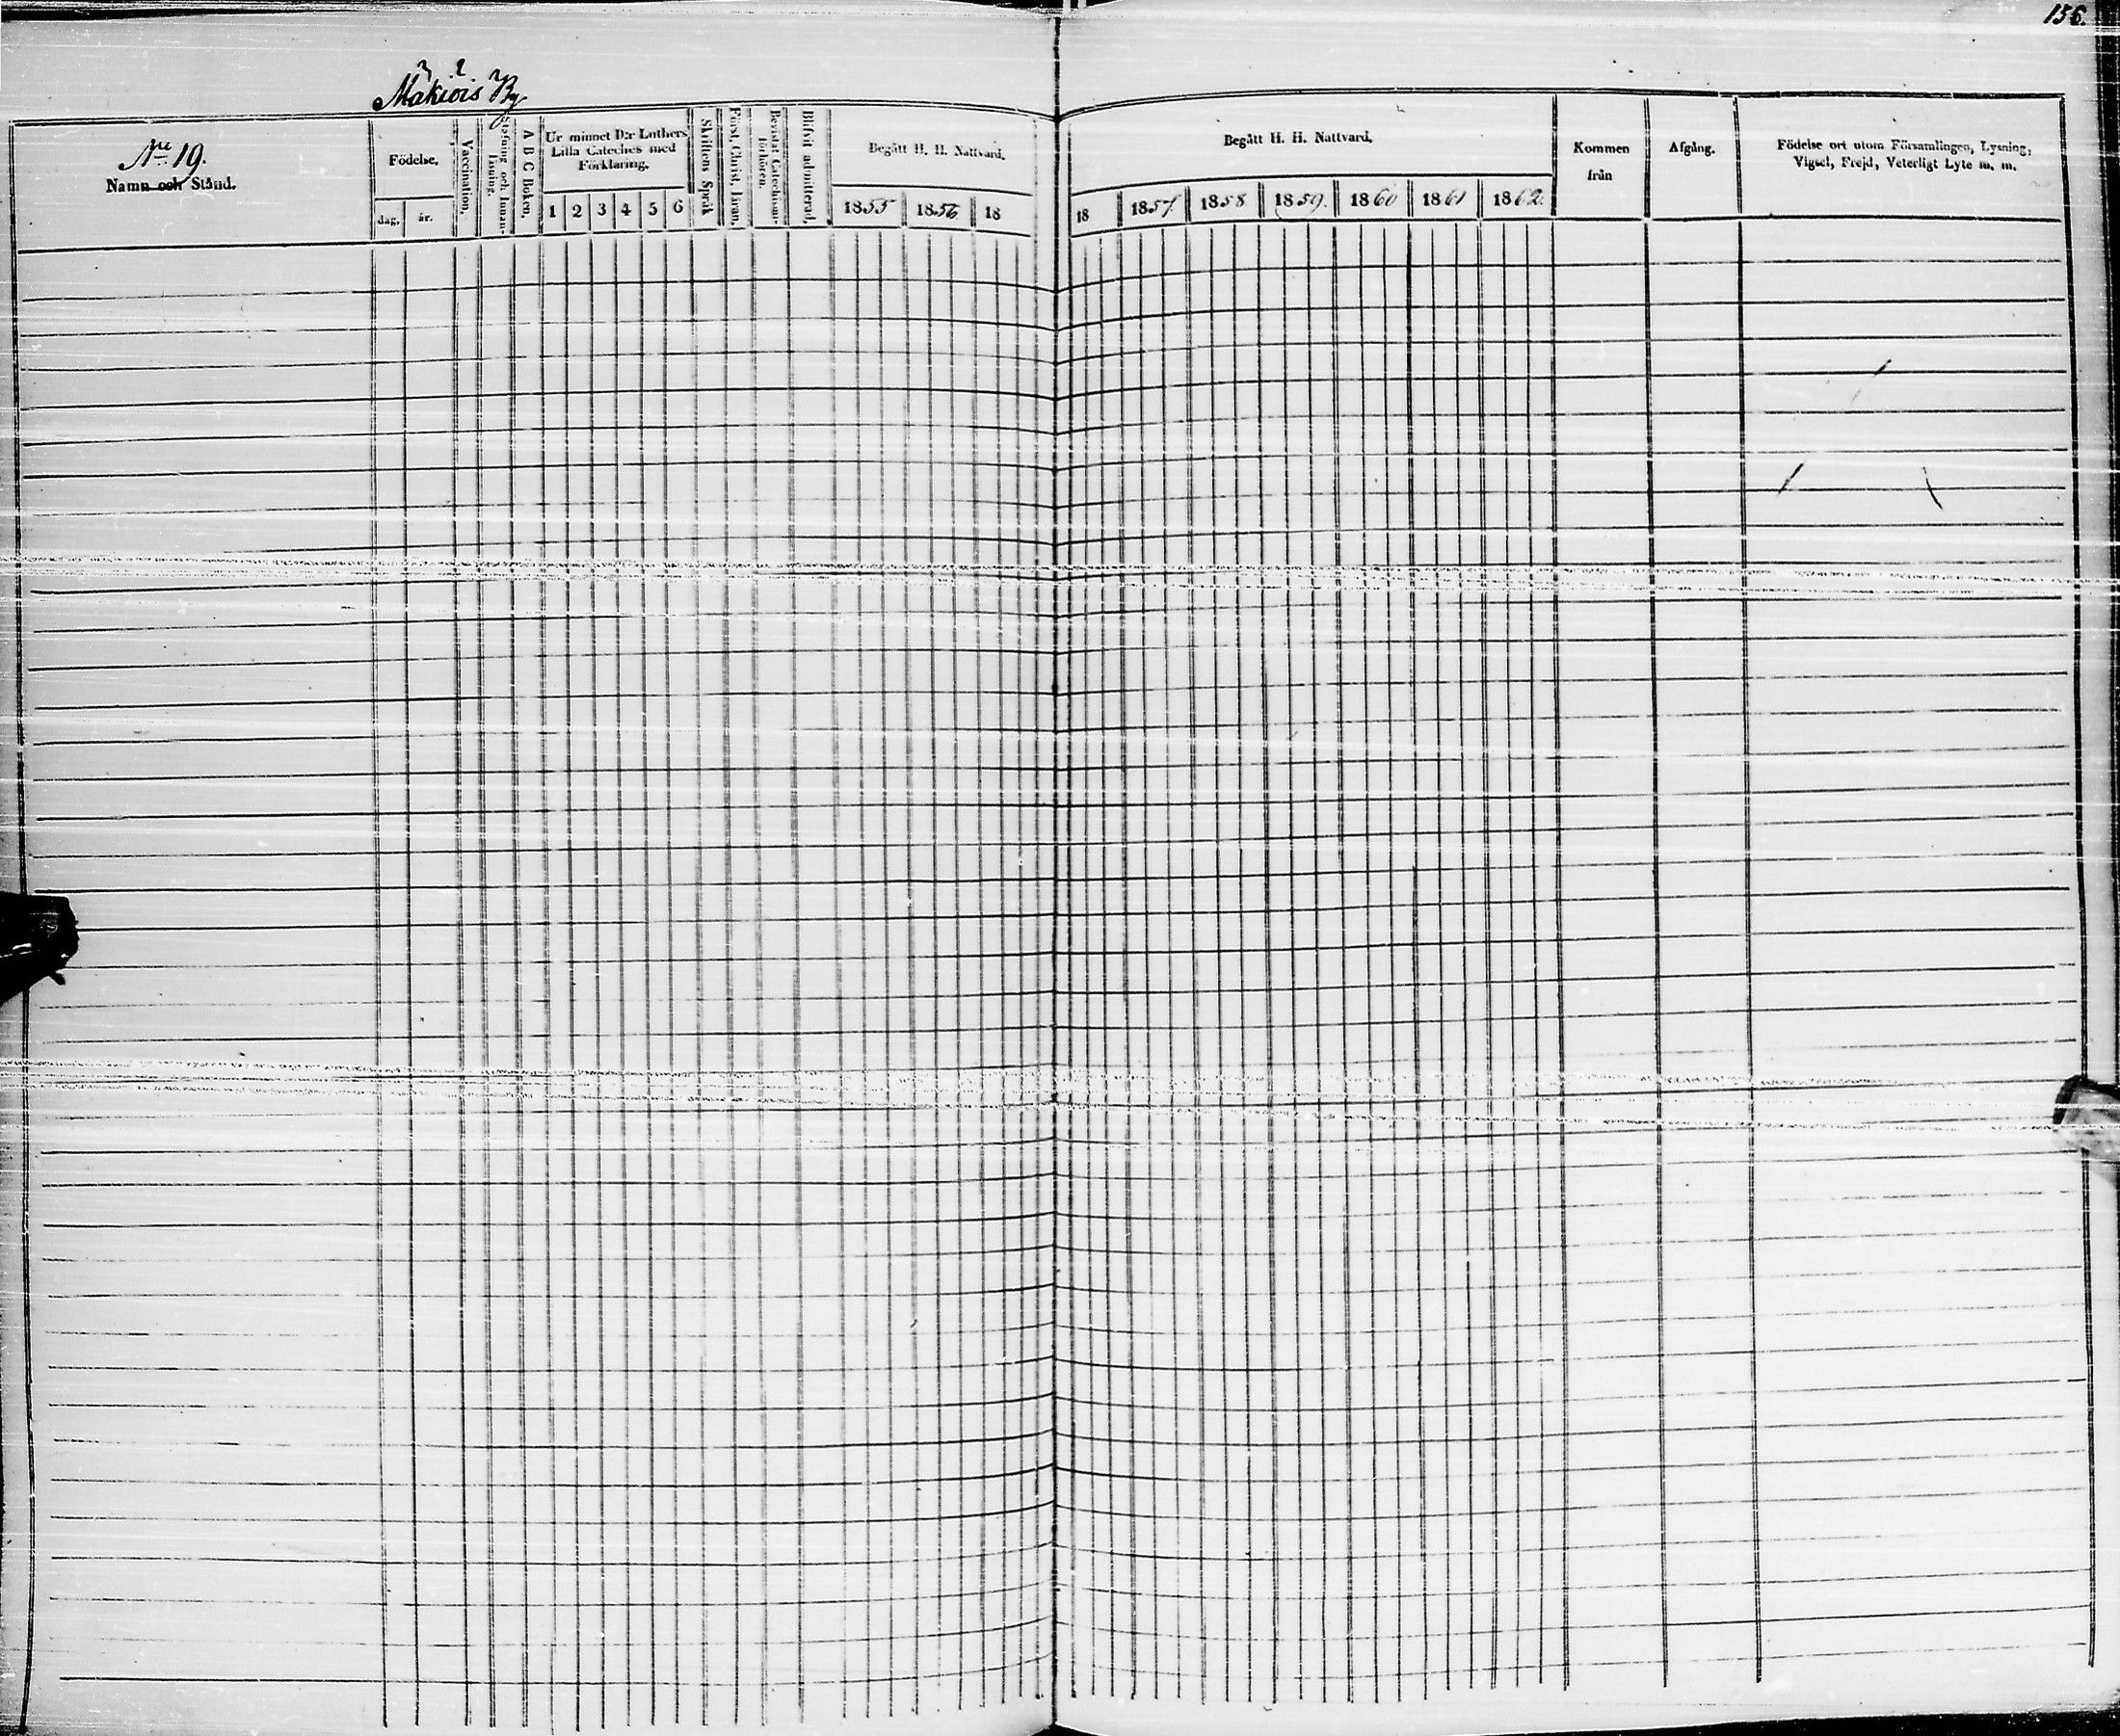 156.
Makiois By
No 19.
Namn och Stånd.
Födelse.
dag.
år.
Vaccination.
Stafning och Innan-
läsning.
A B C Boken.
Ur minnet D:r Luthers
Lilla Cateches med
Förklaring.
1 2 3 4 5 6
Skriftens Språk
Först. Christ. läran.
Bevistat Catechism-
förhören.
Blifvit admitterad.
Begått H. H. Nattvard.
1855 1856 18
Begått H. H. Nattvard.
18 1857. 1858 1859. 1860 1861 1862.
Kommen
från
Afgång.
Födelse ort utom Församlingen, Lysning,
Vigsel, Frejd, Veterligt Lyte m. m.